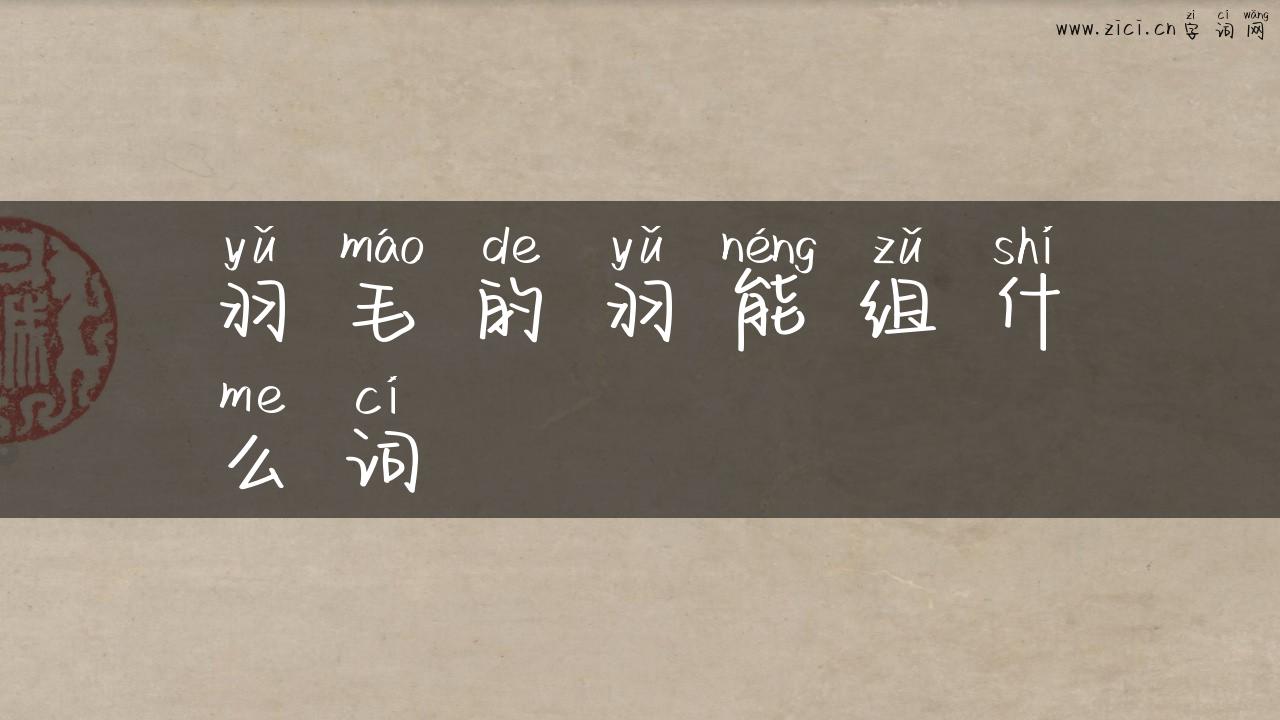 www.zici.cn 字词网
zì cí wǎng
yǔ máo de yǔ néng zǔ shí
羽毛的羽能组什
me cí
么词